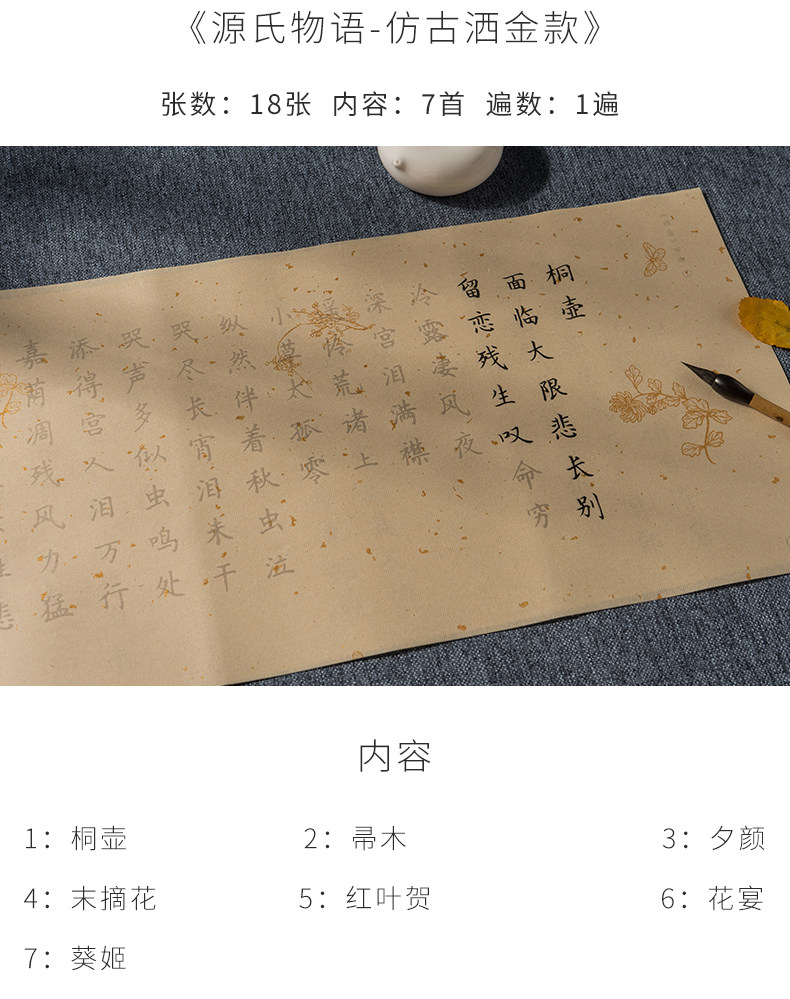 《源氏物语-仿古洒金款》
张数：18张 内容：7首 遍数：1遍
桐壶
面临大限悲长别
留恋残生叹命穷
冷露凄风夜
深宫泪满襟
遥怜荒诸上
小太孤零
纵然伴着秋虫泣
哭尽长宵泪未干
哭声多似虫鸣处
添得宫人泪万行
嘉荫凋残风力猛
内容
1：桐壶 2：帚木 3：夕颜
4：末摘花 5：红叶贺 6：花宴
7：葵姬